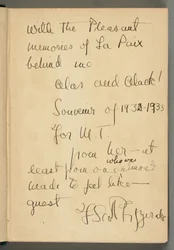 With the Pleasant
memories of La Paix
behind me
alas and alack!
Souvenir of 1932-1933
For M T.
from her—at
least from one whom
made to feel like—
guest
F Scott Fitzgerald